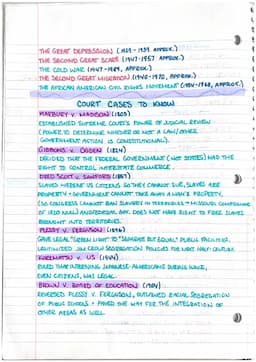 THE GREAT DEPRESSION (1929-1939 APPROX.)
THE SECOND GREAT SCARE (1947-1957 APPROX.)
THE COLD WAR (1947-1989, APPROX.)
THE SECOND GREAT MIGRATION (1940-1970, APPROX.)
THE AFRICAN AMERICAN CIVIL RIGHTS MOVEMENT (1954-1968, APPROX.)
COURT CASES TO KNOW
MARBURY V. MADISON (1803)
ESTABLISHED SUPREME COURT'S POWER OF JUDICIAL REVIEW
(POWER TO DETERMINE WHETHER OR NOT A LAW/OTHER
GOVERNMENT ACTION IS CONSTITUTIONAL).
GIBBONS V. OGDEN (1824)
DECIDED THAT THE FEDERAL GOVERNMENT (NOT STATES) HAD THE
RIGHT TO CONTROL INTERSTATE COMMERCE.
DRED SCOTT V. SANFORD (1857)
SLAVES WEREN'T US CITIZENS SO THEY CANNOT SUE, SLAVES ARE
PROPERTY + GOVERNMENT CANNOT TAKE AWAY A MAN'S PROPERTY,
(SO CONGRESS CANNOT BAN SLAVERY IN TERRITORIES → MISSOURI COMPROMISE
OF 1820 NULL) AND FEDERAL GOV. DOES NOT HAVE RIGHT TO FREE SLAVES
BROUGHT INTO TERRITORIES.
PLESSY V. FERGUSON (1896)
GAVE LEGAL "GREEN LIGHT" TO "SEPARATE BUT EQUAL" PUBLIC FACILITIES.
LEGITIMIZED JIM CROW SEGREGATION POLICIES FOR NEXT HALF-CENTURY.
KOREMATSU V. US (1944)
RULED THAT INTERNING JAPANESE-AMERICANS DURING WWII,
EVEN CITIZENS, WAS LEGAL.
BROWN V. BOARD OF EDUCATION (1954)
REVERSED PLESSY V. FERGUSON, OUTLAWED RACIAL SEGREGATION
OF PUBLIC SCHOOLS + PAVED THE WAY FOR THE INTEGRATION OF
OTHER AREAS AS WELL.